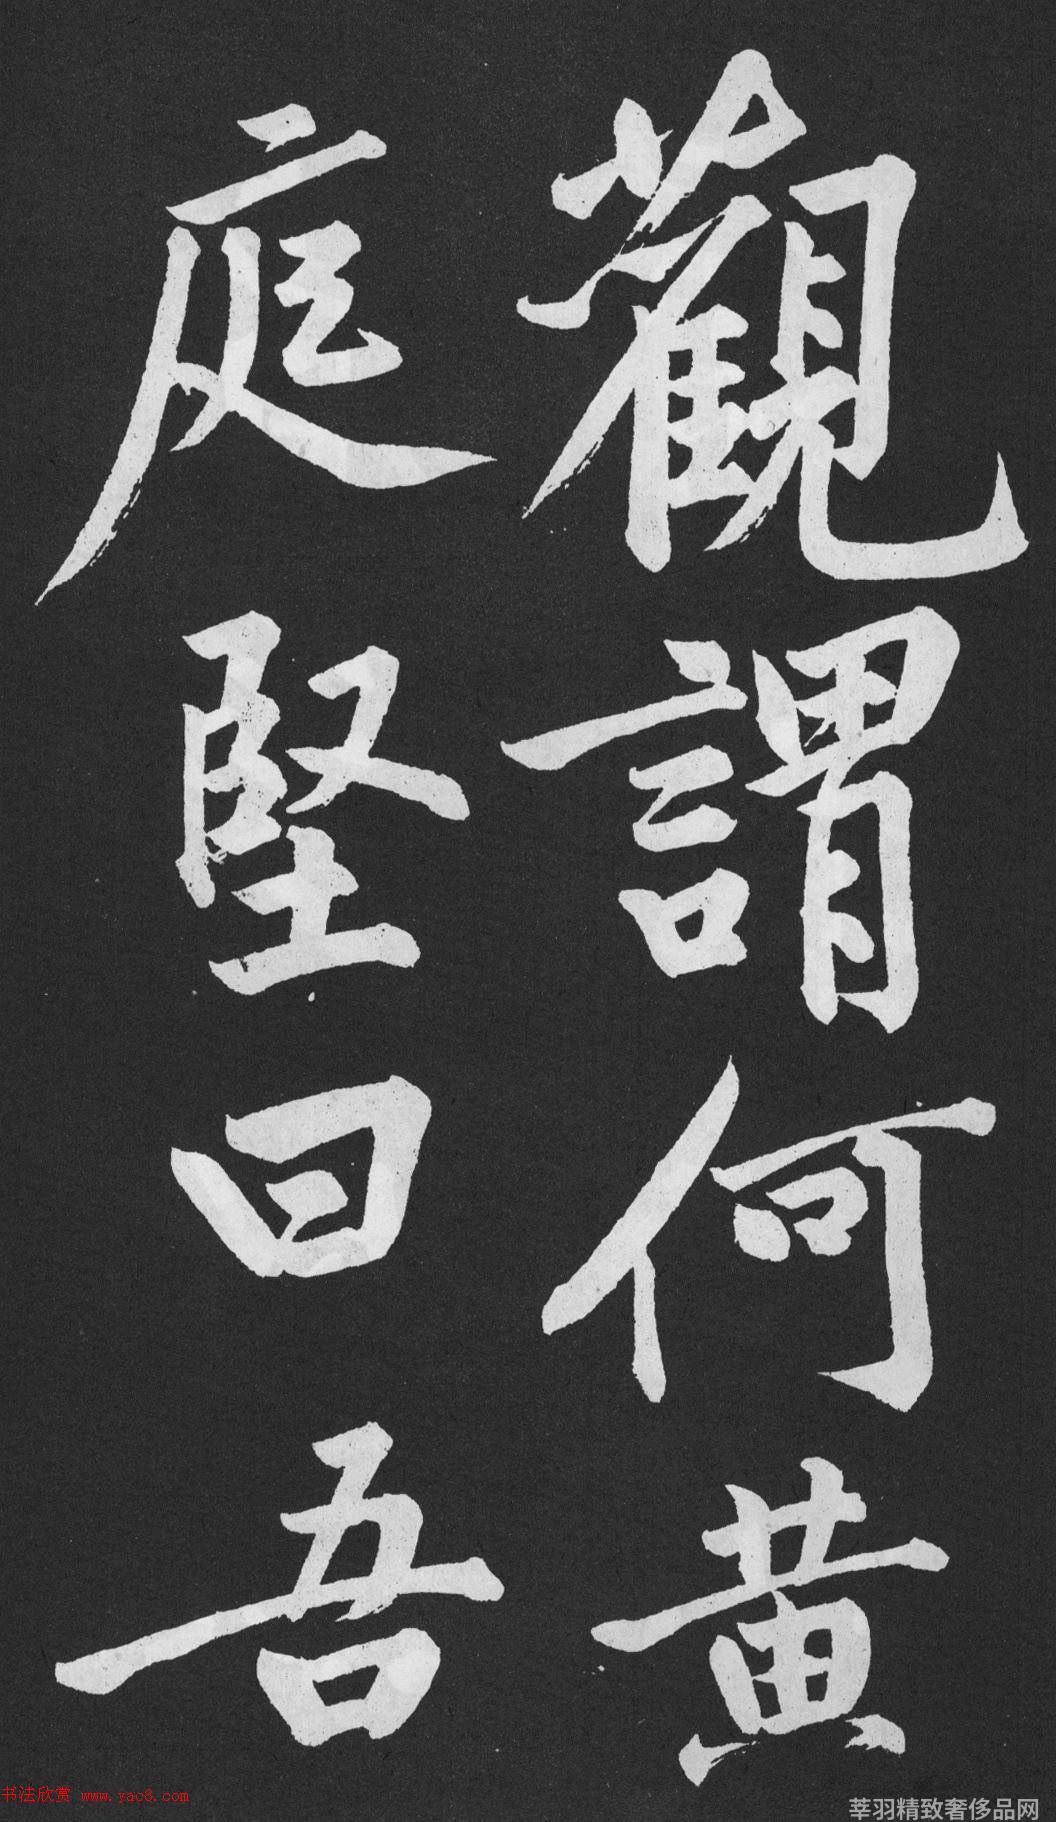 觀謂何黄
庭堅曰吾
书法欣赏 www.yac8.com
莘羽精致奢侈品网